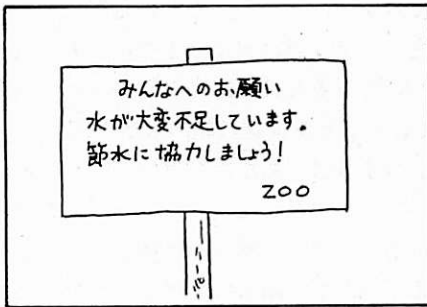 みんなへのお願い
水が大変不足しています。
節水に協力しましょう!
ZOO